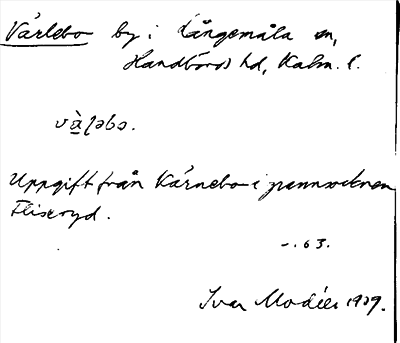 Värlebo by i Långemåla sn,
Handbörds hd, Kalm. l.
vàl̨əbo.
Uppgift från Kärnebo i grannsocknen
Fliseryd.
-.63.
Ivar Modéer 1929.